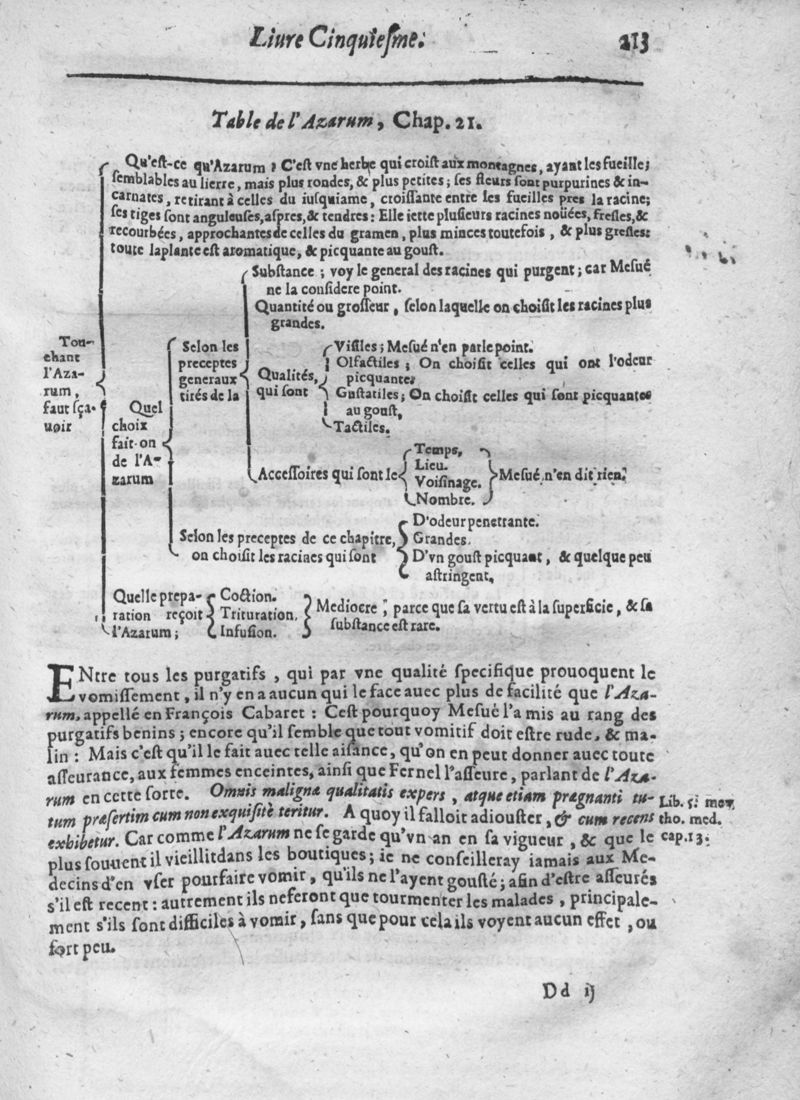 Liure Cinquiesme. 213
Table de l'Azarum, Chap. 21.
Qu'est-ce qu'Azarum? C'est vne herbe qui croist aux montagnes, ayant les fueilles
semblables au lierre, mais plus rondes, & plus petites; ses fleurs sont purpurines & in-
carnates, retirant à celles du iusquiame, croissante entre les fueilles pres la racine;
ses tiges sont anguleuses, aspres, & tendres: Elle iette plusieurs racines noüées, fresles, &
recourbées, approchantes de celles du gramen, plus minces toutefois, & plus gresles:
toute laplante est aromatique, & picquante au goust.
Tou-
chant
l'Aza-
rum,
faut sça-
uoir
Quel
choix
fait-on
de l'A-
zarum
Selon les
preceptes
generaux
tirés de la
Substance; voy le general des racines qui purgent; car Mesué
ne la considere point.
Quantité ou grosseur, selon laquelle on choisit les racines plus
grandes.
Qualités,
qui sont
Visiles; Mesué n'en parle point.
Olfactiles; On choisit celles qui ont l'odeur
picquante.
Gustatiles; On choisit celles qui sont picquantes
au goust.
Tactiles.
Accessoires qui sont le
Temps,
Lieu.
Voisinage.
Nombre.
Mesué n'en dit rien.
Selon les preceptes de ce chapitre,
on choisit les racines qui sont
D'odeur penetrante.
Grandes.
D'vn goust picquant, & quelque peu
astringent.
Quelle prepa-
ration reçoit
l'Azarum;
Coction.
Trituration.
Infusion.
Mediocre; parce que sa vertu est à la superficie, & sa
substance est rare.
ENtre tous les purgatifs, qui par vne qualité specifique prouoquent le
vomissement, il n'y en a aucun qui le face auec plus de facilité que l'Aza-
rum, appellé en François Cabaret: C'est pourquoy Mesué l'a mis au rang des
purgatifs benins; encore qu'il semble que tout vomitif doit estre rude, & ma-
lin: Mais c'est qu'il le fait auec telle aisance, qu'on en peut donner auec toute
asseurance, aux femmes enceintes, ainsi que Fernel l'asseure, parlant de l'Aza-
rum en cette sorte. Omnis malignæ qualitatis expers, atque etiam prægnanti tu-
tum præsertim cum non exquisitè teritur. A quoy il falloit adiouster, & cum recens
exhibetur. Car comme l'Azarum ne se garde qu'vn an en sa vigueur, & que le
plus souuent il vieillit dans les boutiques; ie ne conseilleray iamais aux Me-
decins d'en vser pour faire vomir, qu'ils ne l'ayent gousté; afin d'estre asseurés
s'il est recent: autrement ils neferont que tourmenter les malades, principale-
ment s'ils sont difficiles à vomir, sans que pour cela ils voyent aucun effet, ou
fort peu.
Lib. 5. met
tho. med.
cap. 13.
Dd ij